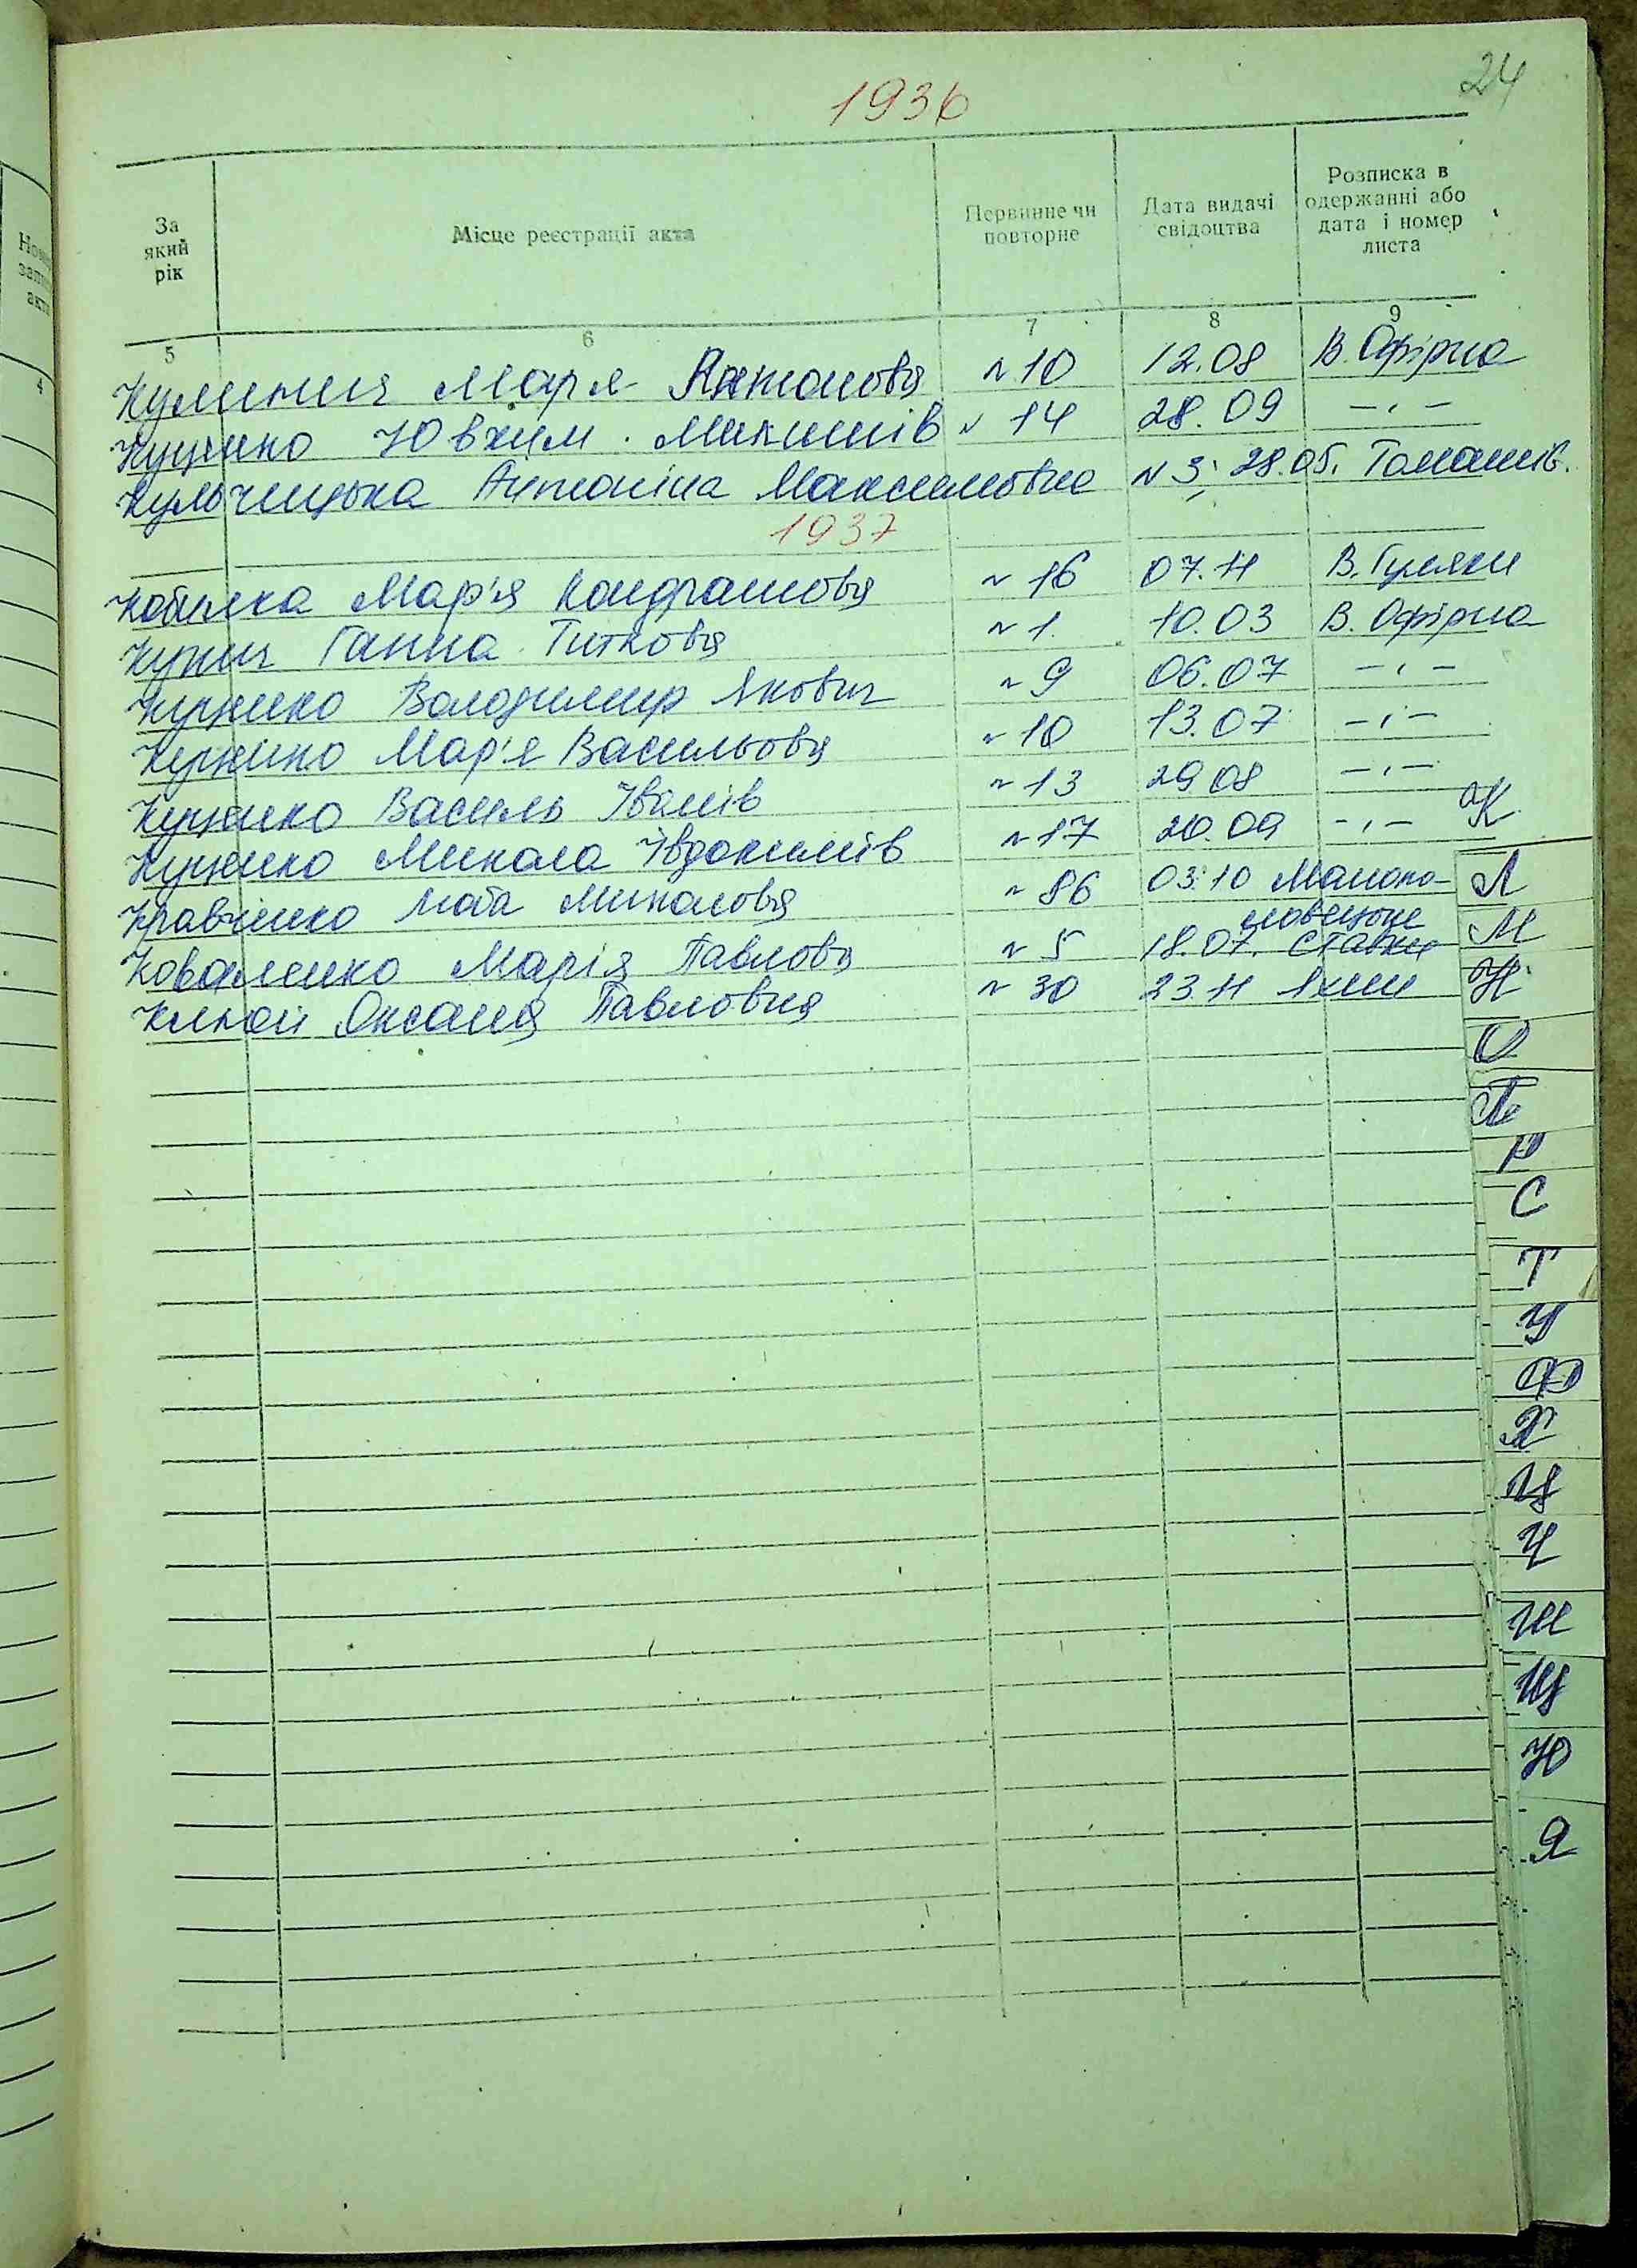 24
1936
За який рік
Місце реєстрації акта
Первинне чи повторне
Дата видачі свідоцтва
Розписка в одержанні або дата і номер листа
Номер запису акта
4
5 6 7 8 9
Кулинич Мар'я Антонова № 10 12.08 В. Офірна
Куценко Ювхим Микитів № 14 28.09 -"-
Кульчицька Антоніна Максимовна № 3 28.05. Томашів.
1937
Кобилка Мар'я Кондратова № 16 07.11 В. Гуляки
Купич Ганна Титкова № 1. 10.03 В. Офірна
Куценко Володимир Якович № 9 06.07 -"-
Куценко Мар'я Васильова № 10 13.07 -"-
Куценко Василь Іванів № 13 29 08 -"-
Куценко Микола Ївдокимів № 17 20.09 -"-
Кравченко Люба Миколова № 86 03.10
Коваленко Марія Павлова № 5 18.07. Ставки
Оксана Павловна № 30 23.11 Яхни
К
Л
М
Н
О
П
Р
С
Т
У
Ф
Х
Ц
Ч
Ш
Щ
Ю
Я